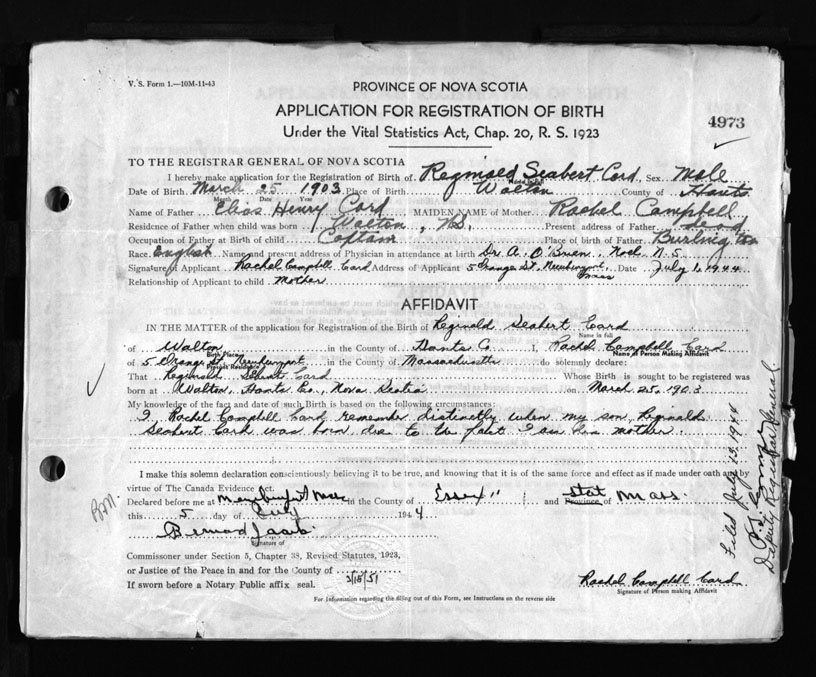 V. S. Form 1.—10M-11-43
PROVINCE OF NOVA SCOTIA
APPLICATION FOR REGISTRATION OF BIRTH
Under the Vital Statistics Act, Chap. 20, R. S. 1923
4973
TO THE REGISTRAR GENERAL OF NOVA SCOTIA
I hereby make application for the Registration of Birth of Reginald Seabert Card, Sex Male
Date of Birth March 25 1903 Place of Birth Walton County of Hants
Month Date Year
Name of Father Elias Henry Card MAIDEN NAME of Mother Rachel Campbell
Residence of Father when child was born Walton, N.S. Present address of Father dead
Occupation of Father at Birth of child Captain Place of birth of Father Burlington
Race English Name and present address of Physician in attendance at birth Dr. A. O'Brien, Noel, N.S.
Signature of Applicant Rachel Campbell Card Address of Applicant 5 Orange St, Newburyport, Mass Date July 1, 1944
Relationship of Applicant to child Mother
AFFIDAVIT
IN THE MATTER of the application for Registration of the Birth of Reginald Seabert Card
Name in full
of Walton in the County of Hants Co I, Rachel Campbell Card
Birth Place Name of Person Making Affidavit
of 5 Orange St Newburyport in the County of Massachusetts do solemnly declare:
Present Residence
That Reginald Card Whose Birth is sought to be registered was
born at Walton, Hants Co, Nova Scotia on March 25, 1903
My knowledge of the fact and date of such Birth is based on the following circumstances:
I, Rachel Campbell Card remember distinctly when my son, Reginald
Seabert Card was born, due to the fact I am his mother.
I make this solemn declaration conscientiously believing it to be true, and knowing that it is of the same force and effect as if made under oath and by
virtue of The Canada Evidence Act.
Declared before me at Newburyport Mass in the County of Essex and State Province of Mass.
this 5 day of July 1944
Signature of
Commissioner under Section 5, Chapter 38, Revised Statutes, 1923,
or Justice of the Peace in and for the County of
If sworn before a Notary Public affix seal.
3/15/51
Rachel Campbell Card
Signature of Person making Affidavit
For Information regarding the filling out of this Form, see Instructions on the reverse side
Filed July 13, 1944
Deputy Registrar General